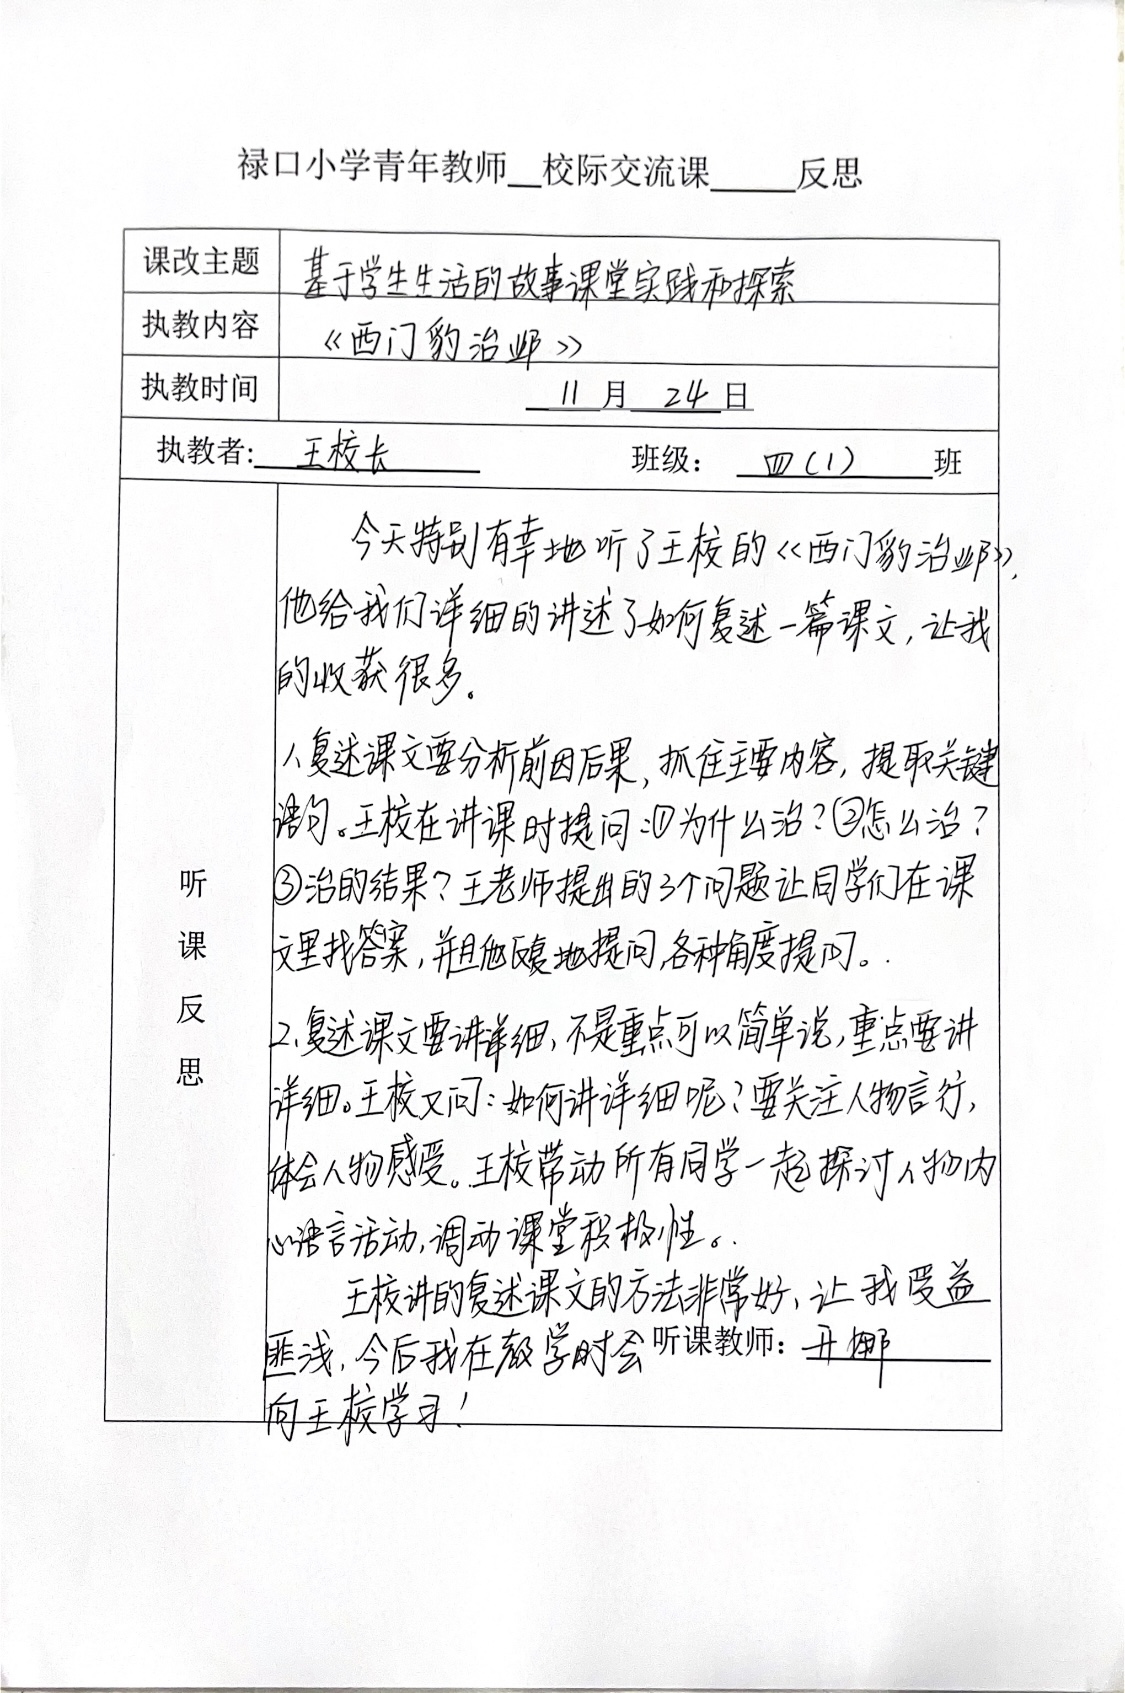 禄口小学青年教师__校际交流课_____反思
课改主题 基于学生生活的故事课堂实践和探索
执教内容 《西门豹治邺》
执教时间 11月24日
执教者: 王校长 班级: 四(1) 班
听课反思
今天特别有幸地听了王校的《西门豹治邺》,
他给我们详细的讲述了如何复述一篇课文,让我
的收获很多。
1、复述课文要分析前因后果,抓住主要内容,提取关键
语句。王校在讲课时提问:①为什么治?②怎么治?
③治的结果?王老师提出的3个问题让同学们在课
文里找答案,并且他反复地提问,各种角度提问。
2、复述课文要讲详细,不是重点可以简单说,重点要讲
详细。王校又问:如何讲详细呢?要关注人物言行,
体会人物感受。王校带动所有同学一起探讨人物内
心语言活动,调动课堂积极性。
王校讲的复述课文的方法非常好,让我受益
匪浅,今后我在教学时会 听课教师:
向王校学习!